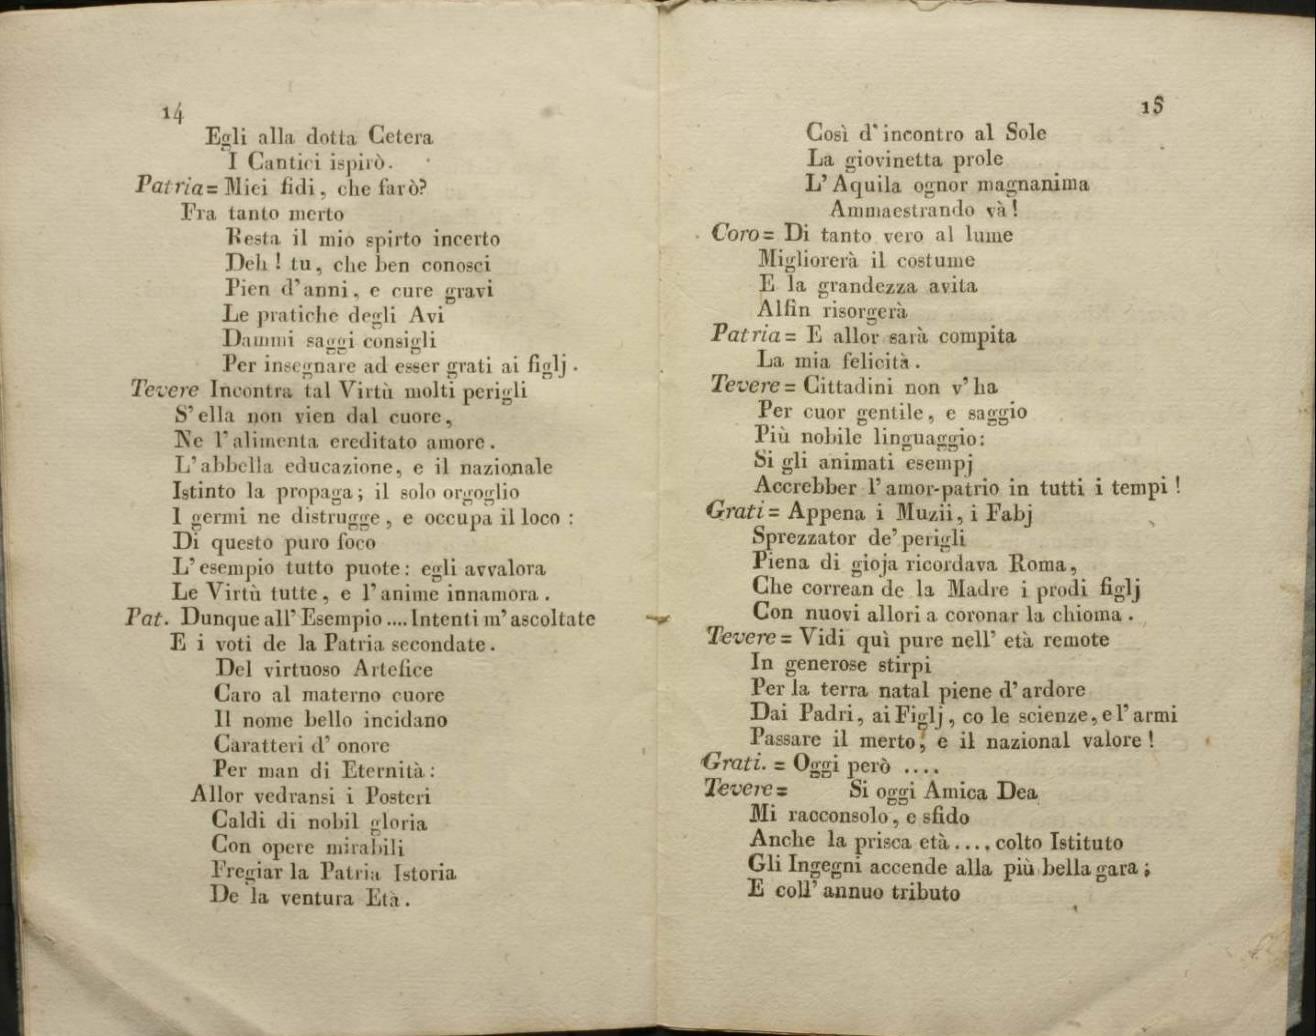 14
Egli alla dotta Cetera
I Cantici ispirò.
Patria= Miei fidi, che farò?
Fra tanto merto
Resta il mio spirto incerto
Deh! tu, che ben conosci
Pien d'anni, e cure gravi
Le pratiche degli Avi
Dammi saggi consigli
Per insegnare ad esser grati ai figlj.
Tevere Incontra tal Virtù molti perigli
S'ella non vien dal cuore,
Ne l'alimenta ereditato amore.
L'abbella educazione, e il nazionale
Istinto la propaga; il solo orgoglio
I germi ne distrugge, e occupa il loco:
Di questo puro foco
L'esempio tutto puote: egli avvalora
Le Virtù tutte, e l'anime innamora.
Pat. Dunque all'Esempio .... Intenti m'ascoltate
E i voti de la Patria secondate.
Del virtuoso Artefice
Caro al materno cuore
Il nome bello incidano
Caratteri d' onore
Per man di Eternità:
Allor vedransi i Posteri
Caldi di nobil gloria
Con opere mirabili
Fregiar la Patria Istoria
De la ventura Età.
15
Così d'incontro al Sole
La giovinetta prole
L'Aquila ognor magnanima
Ammaestrando và!
Coro= Di tanto vero al lume
Migliorerà il costume
E la grandezza avita
Alfin risorgerà
Patria= E allor sarà compita
La mia felicità.
Tevere= Cittadini non v'ha
Per cuor gentile, e saggio
Più nobile linguaggio:
Si gli animati esempj
Accrebber l'amor-patrio in tutti i tempi!
Grati= Appena i Muzii, i Fabj
Sprezzator de' perigli
Piena di gioja ricordava Roma,
Che correan de la Madre i prodi figlj
Con nuovi allori a coronar la chioma.
Tevere= Vidi quì pure nell' età remote
In generose stirpi
Per la terra natal piene d'ardore
Dai Padri, ai Figlj, co le scienze, e l'armi
Passare il merto, e il nazional valore!
Grati. = Oggi però ....
Tevere= Si oggi Amica Dea
Mi racconsolo, e sfido
Anche la prisca età .... colto Istituto
Gli Ingegni accende alla più bella gara;
E coll' annuo tributo